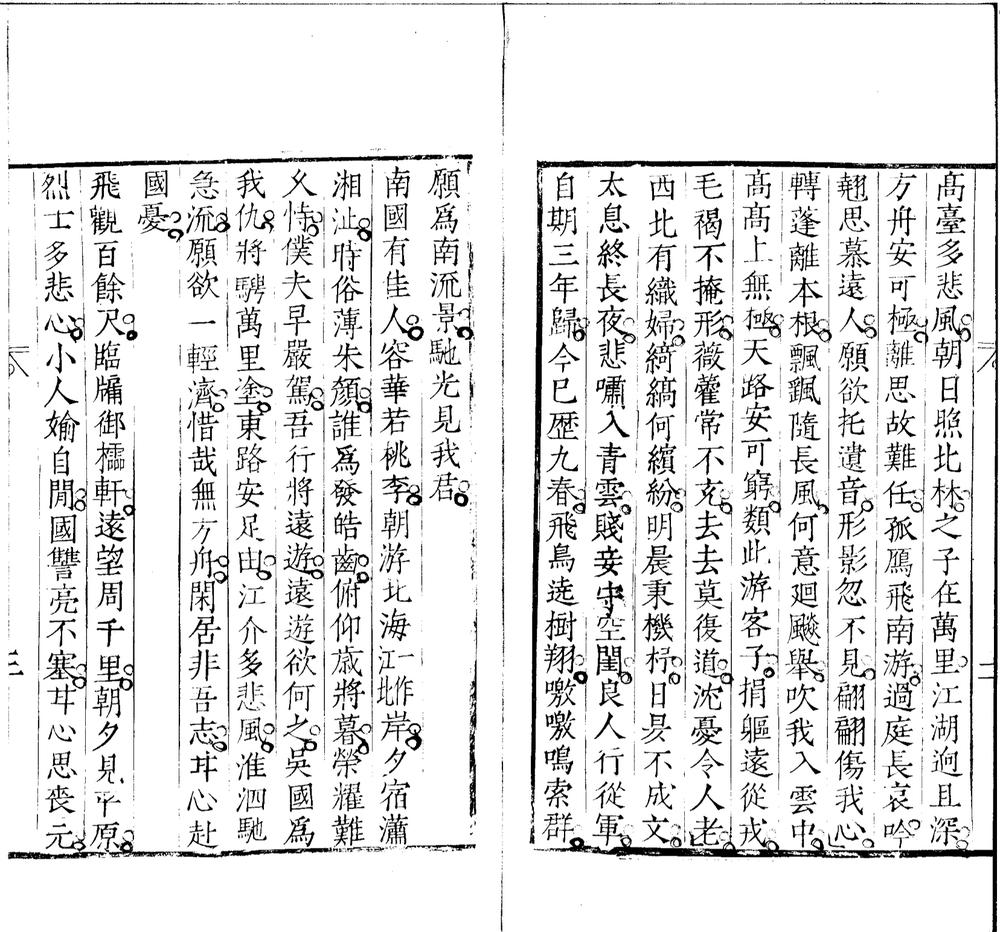 高臺多悲風朝日照北林之子在萬里江湖迥且深
方舟安可極離思故難任孤鴈飛南游過庭長哀吟
翹思慕遠人願欲托遺音形影忽不見翩翩傷我心
轉蓬離本根飄颻隨長風何意廻飈舉吹我入雲中
髙髙上無極天路安可窮類此游客子捐軀遠從戎
毛褐不掩形薇藿常不充去去莫復道沈憂令人老
西北有織婦綺縞何繽紛明晨秉機杼日昃不成文
太息終長夜悲嘯入青雲賤妾守空閨良人行從軍
自期三年歸今已歷九春飛鳥遶樹翔噭噭鳴索群
願爲南流景馳光見我君
南國有佳人容華若桃李朝游北海一作江北岸夕宿瀟
湘沚時俗薄朱顏誰爲發皓齒俯仰歲將暮榮耀難
乆恃僕夫早嚴駕吾行將遠遊遠遊欲何之吳國爲
我仇將騁萬里塗東路安足由江介多悲風淮泗馳
急流願欲一輕濟惜哉無方舟閑居非吾志甘心赴
國憂
飛觀百餘尺臨牖御櫺軒遠望周千里朝夕見平原
烈士多悲心小人婾自閒國讐亮不塞甘心思喪元
二
三